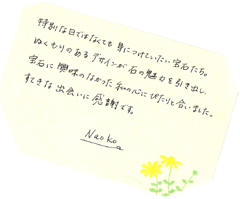 特別な日ではなくても 身につけていたい宝石たち。
ぬくもりのある デザインが 石の魅力を引き出し、
宝石に 興味のなかった 私の心にぴたりと合いました。
すてきな 出会いに 感謝です。
Naoko